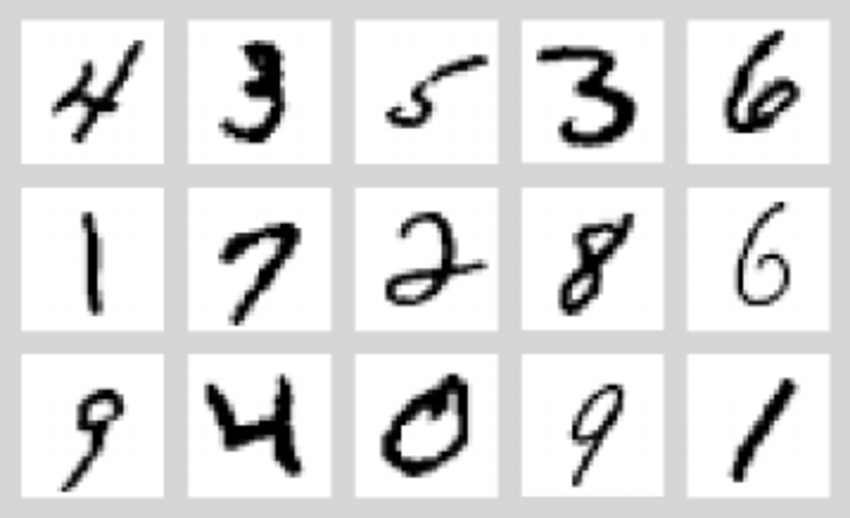 4 3 5 3 6
1 7 2 8 6
9 4 0 9 1